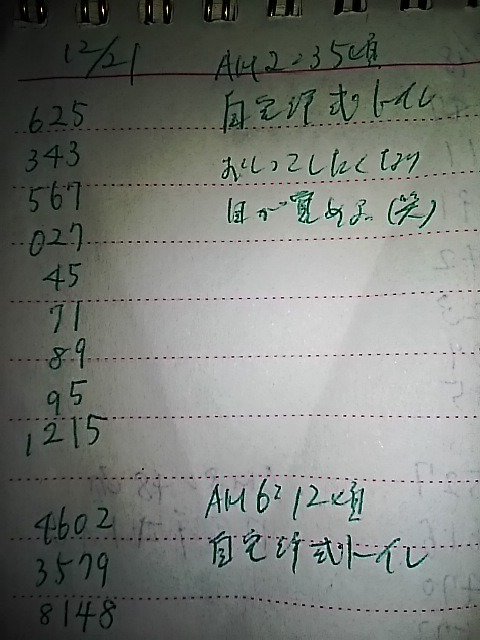 12/21
AM2:35頃
625
自宅洋式トイレ
343
おしっこしたくなり
567
目が覚める(笑)
027
45
71
89
95
1215
AM6:12頃
4602
自宅洋式トイレ
3579
8148